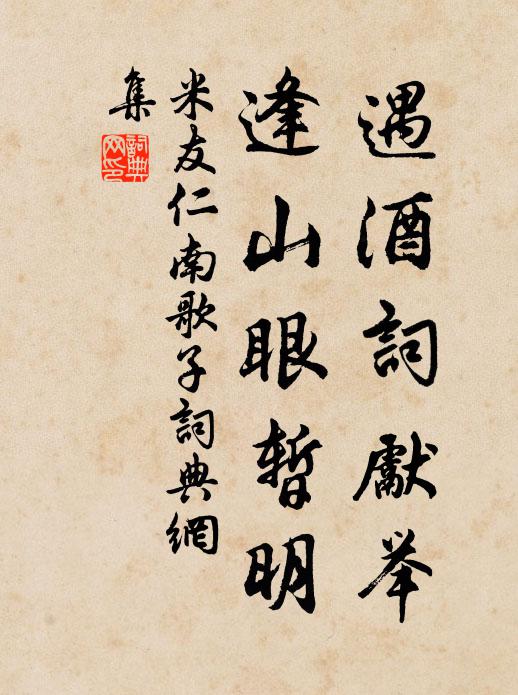 遇酒詞獻举
逢山眼暫明
米友仁南歌子詞典網
集
詞典網印